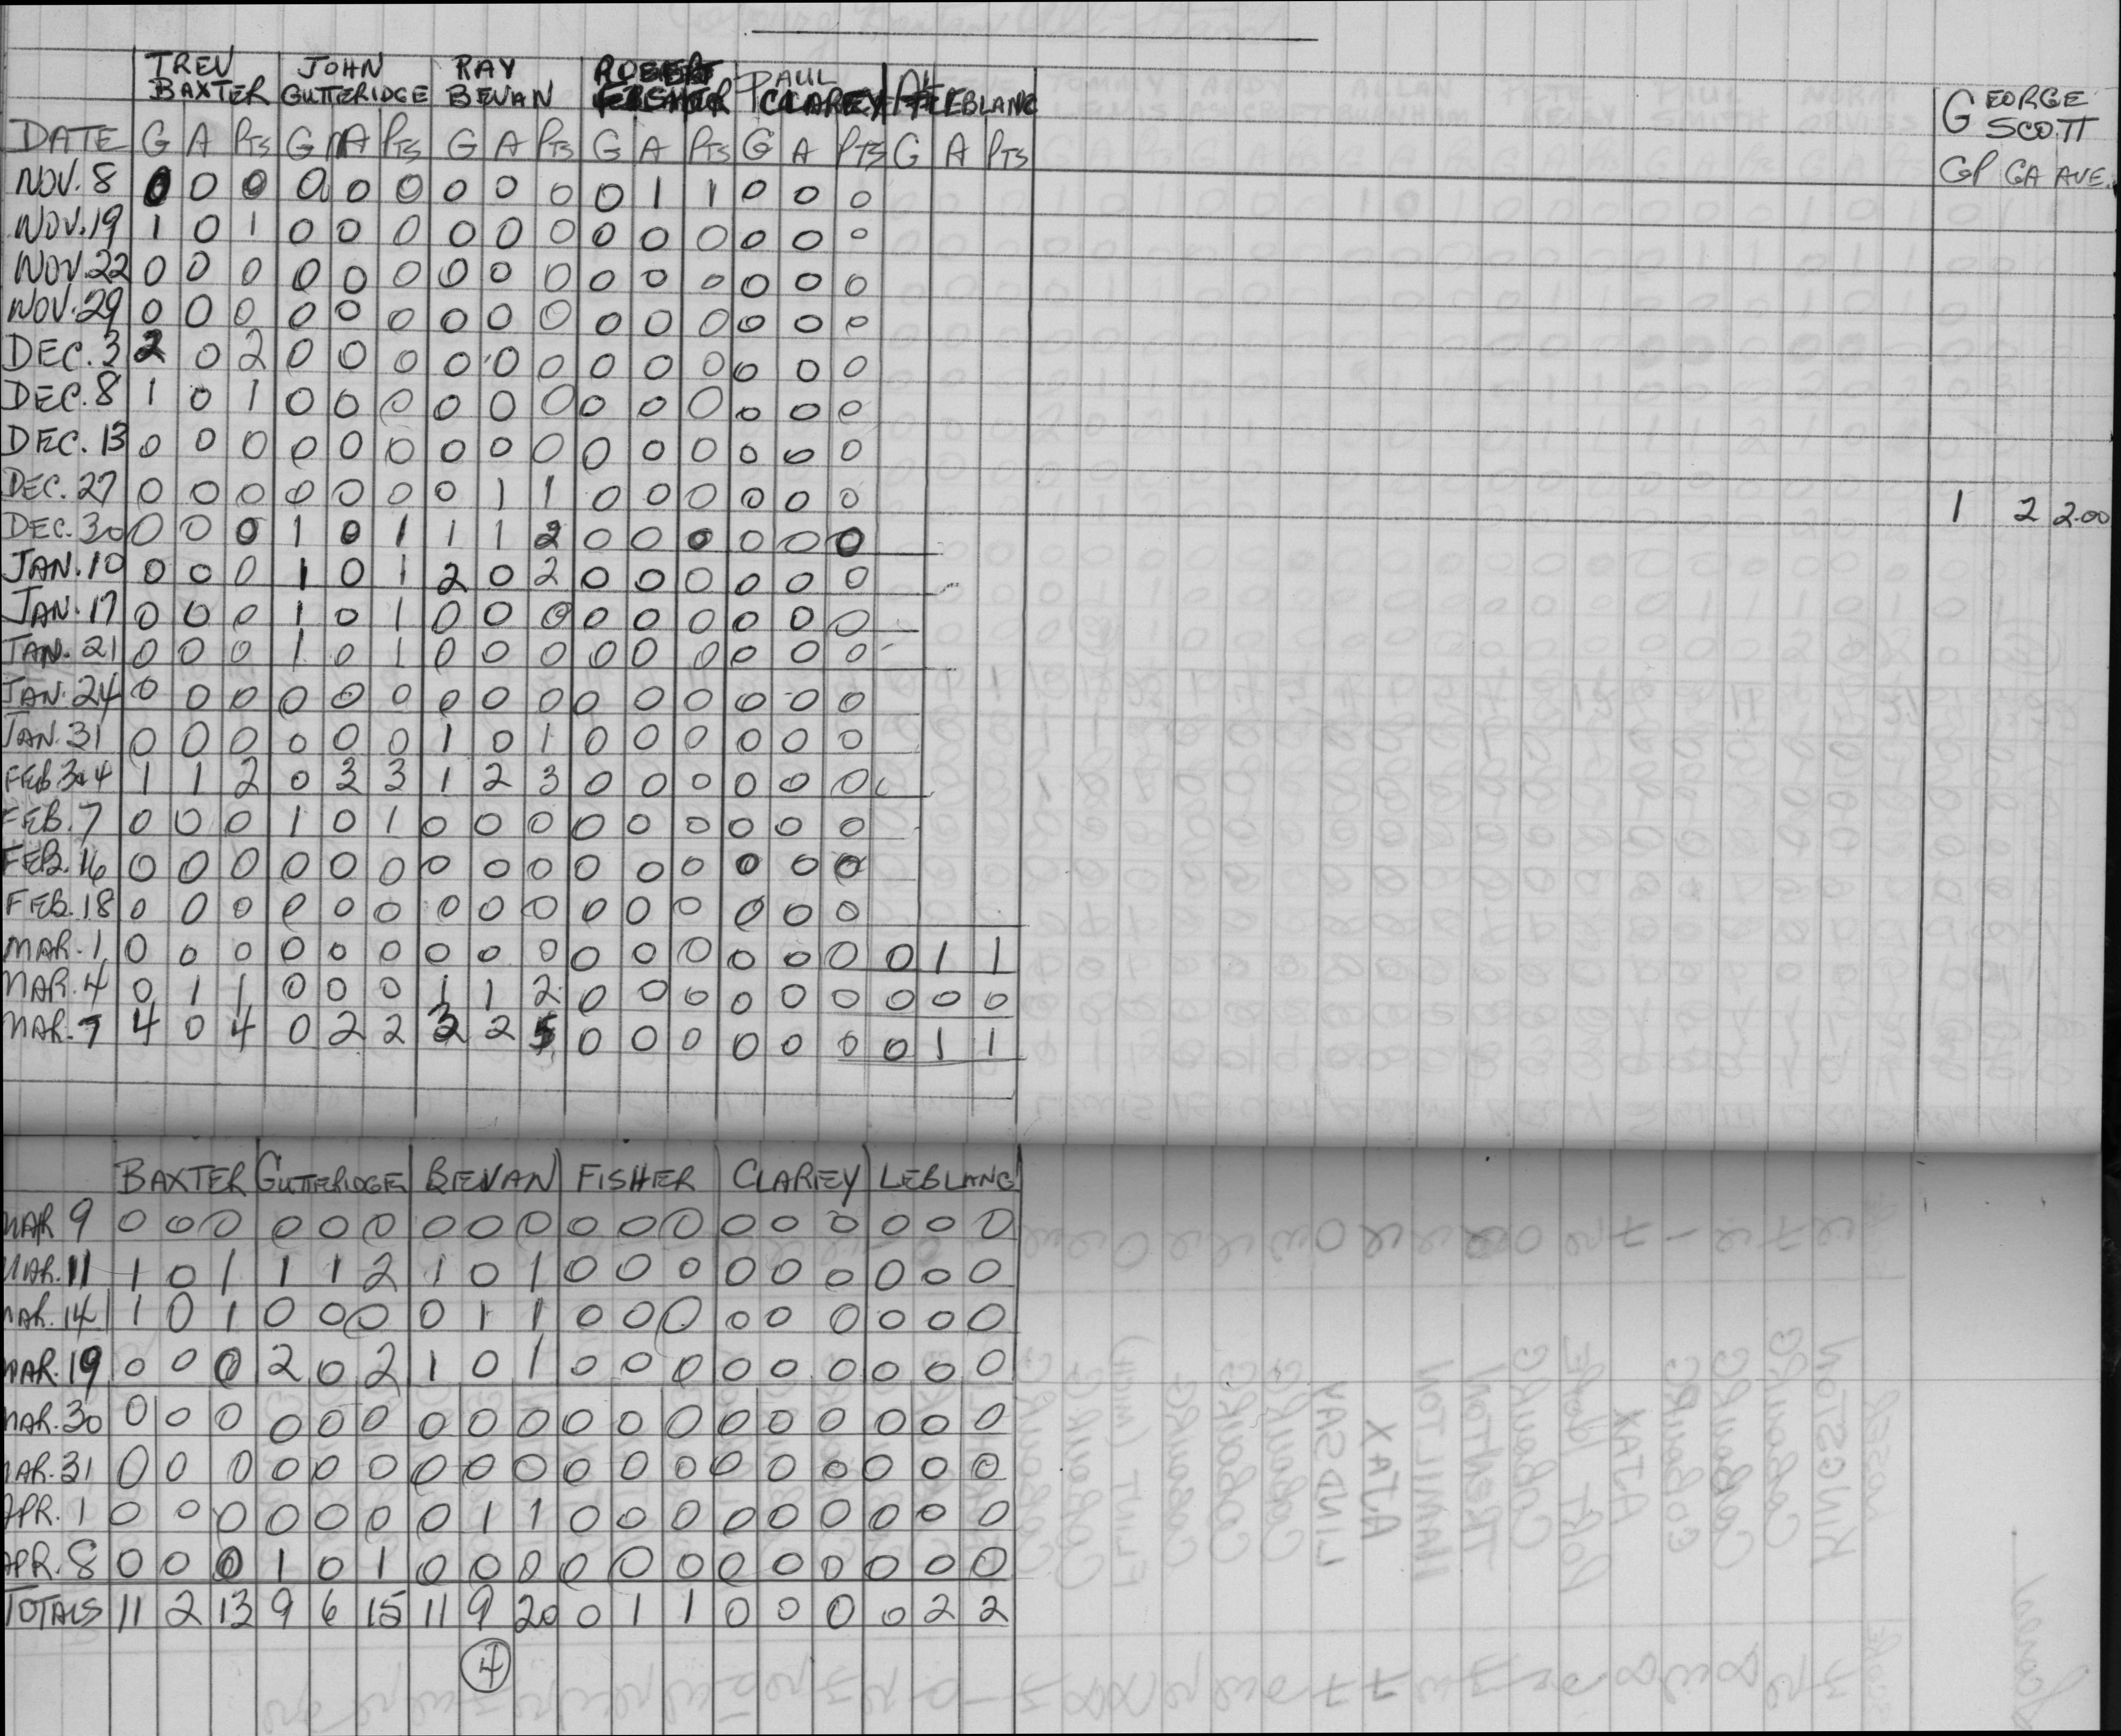 TREV BAXTER JOHN GUTTERIDGE RAY BEVAN ROBERT FISHER PAUL CLAREY LEBLANC GEORGE SCOTT
DATE G A PTS G A PTS G A PTS G A PTS G A PTS G A PTS GP GA AVE.
NOV. 8 0 0 0 0 0 0 0 0 0 0 1 1 0 0 0
NOV. 19 1 0 1 0 0 0 0 0 0 0 0 0 0 0 0
NOV. 22 0 0 0 0 0 0 0 0 0 0 0 0 0 0 0
NOV. 29 0 0 0 0 0 0 0 0 0 0 0 0 0 0 0
DEC. 3 2 0 2 0 0 0 0 0 0 0 0 0 0 0 0
DEC. 8 1 0 1 0 0 0 0 0 0 0 0 0 0 0 0
DEC. 13 0 0 0 0 0 0 0 0 0 0 0 0 0 0 0
DEC. 27 0 0 0 0 0 0 0 1 1 0 0 0 0 0 0 1 2 2.00
DEC. 30 0 0 0 1 0 1 1 1 2 0 0 0 0 0 0
JAN. 10 0 0 0 1 0 1 2 0 2 0 0 0 0 0 0
JAN. 17 0 0 0 1 0 1 0 0 0 0 0 0 0 0 0
JAN. 21 0 0 0 1 0 1 0 0 0 0 0 0 0 0 0
JAN. 24 0 0 0 0 0 0 0 0 0 0 0 0 0 0 0
JAN. 31 0 0 0 0 0 0 1 0 1 0 0 0 0 0 0
FEB. 3&4 1 1 2 0 3 3 1 2 3 0 0 0 0 0 0
FEB. 7 0 0 0 1 0 1 0 0 0 0 0 0 0 0 0
FEB. 16 0 0 0 0 0 0 0 0 0 0 0 0 0 0 0
FEB. 18 0 0 0 0 0 0 0 0 0 0 0 0 0 0 0
MAR. 1 0 0 0 0 0 0 0 0 0 0 0 0 0 0 0 0 1 1
MAR. 4 0 1 1 0 0 0 1 1 2 0 0 0 0 0 0 0 0 0
MAR. 7 4 0 4 0 2 2 3 2 5 0 0 0 0 0 0 0 1 1
BAXTER GUTTERIDGE BEVAN FISHER CLAREY LEBLANC
MAR 9 0 0 0 0 0 0 0 0 0 0 0 0 0 0 0 0 0 0
MAR. 11 1 0 1 1 1 2 1 0 1 0 0 0 0 0 0 0 0 0
MAR. 14 1 0 1 0 0 0 0 1 1 0 0 0 0 0 0 0 0 0
MAR. 19 0 0 0 2 0 2 1 0 1 0 0 0 0 0 0 0 0 0
MAR. 30 0 0 0 0 0 0 0 0 0 0 0 0 0 0 0 0 0 0
MAR. 31 0 0 0 0 0 0 0 0 0 0 0 0 0 0 0 0 0 0
APR. 1 0 0 0 0 0 0 0 1 1 0 0 0 0 0 0 0 0 0
APR. 8 0 0 0 1 0 1 0 0 0 0 0 0 0 0 0 0 0 0
TOTALS 11 2 13 9 6 15 11 9 20 0 1 1 0 0 0 0 2 2
4